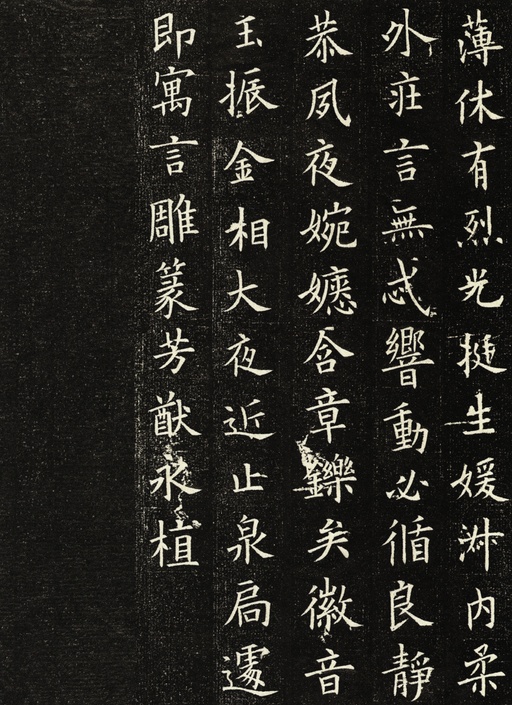 薄休有烈光挺生媛淋内柔
外疘言無忒響動必循良靜
恭夙夜婉嬺含章鑠矣徽音
玉振金相大夜近止泉扃遽
即寓言雕篆芳猷永植